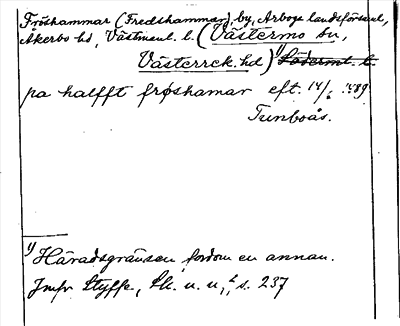 Fröshammar (Fredshammar), by, Arboga landsförsaml,
Åkerbo hd, Västmanl. l. (Västermo sn,
Västerrek. hd) 1) Södermt. l.
pa halfft frøshamar eft. 14/6 1489
Tunboås.
1) Häradsgränsen fordom en annan.
Jmfr Styffe, Sk. u. u., s. 237